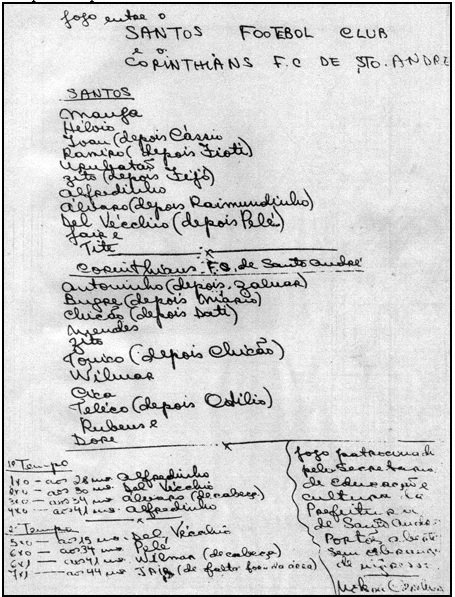 Jogo entre o
SANTOS FOOTEBOL CLUB
e o
CORINTHIANS F.C DE STO. ANDRE
SANTOS
Manga
Hélvio
Ivan (depois Cássio
Ramiro (depois Fioti)
Urubatão
Zito (depois Feijó)
Alfredinho
Álvaro (depois Raimundinho)
Del Vécchio (depois Pelé)
Jair e
Tite
Corinthians F.C. de Santo André
Antoninho (depois Zaluar)
Bugre (depois Mário)
Chicão (depois Dati)
Mendes
Zito
Tonico (depois Chicão)
Wilmar
Cica
Teléco (depois Otilio)
Rubens e
Dore
1º Tempo
1x0 — aos 28 ms Alfredinho
2x0 — aos 30 ms Del Vécchio
3x0 — aos 34 ms Álvaro (de cabeça)
4x0 — aos 41 ms Alfredinho
2º Tempo
5x0 — aos 15 ms Del Vécchio
6x0 — aos 34 ms Pelé
6x1 — aos 41 ms Wilmar (de cabeça)
7x1 — aos 44 ms JAIR (de falta fora da área)
Jogo patrocinado
pela Secretaria
de educação e
cultura da
Prefeitura
de Santo André.
Portões abertos
sem cobrança
de ingresso